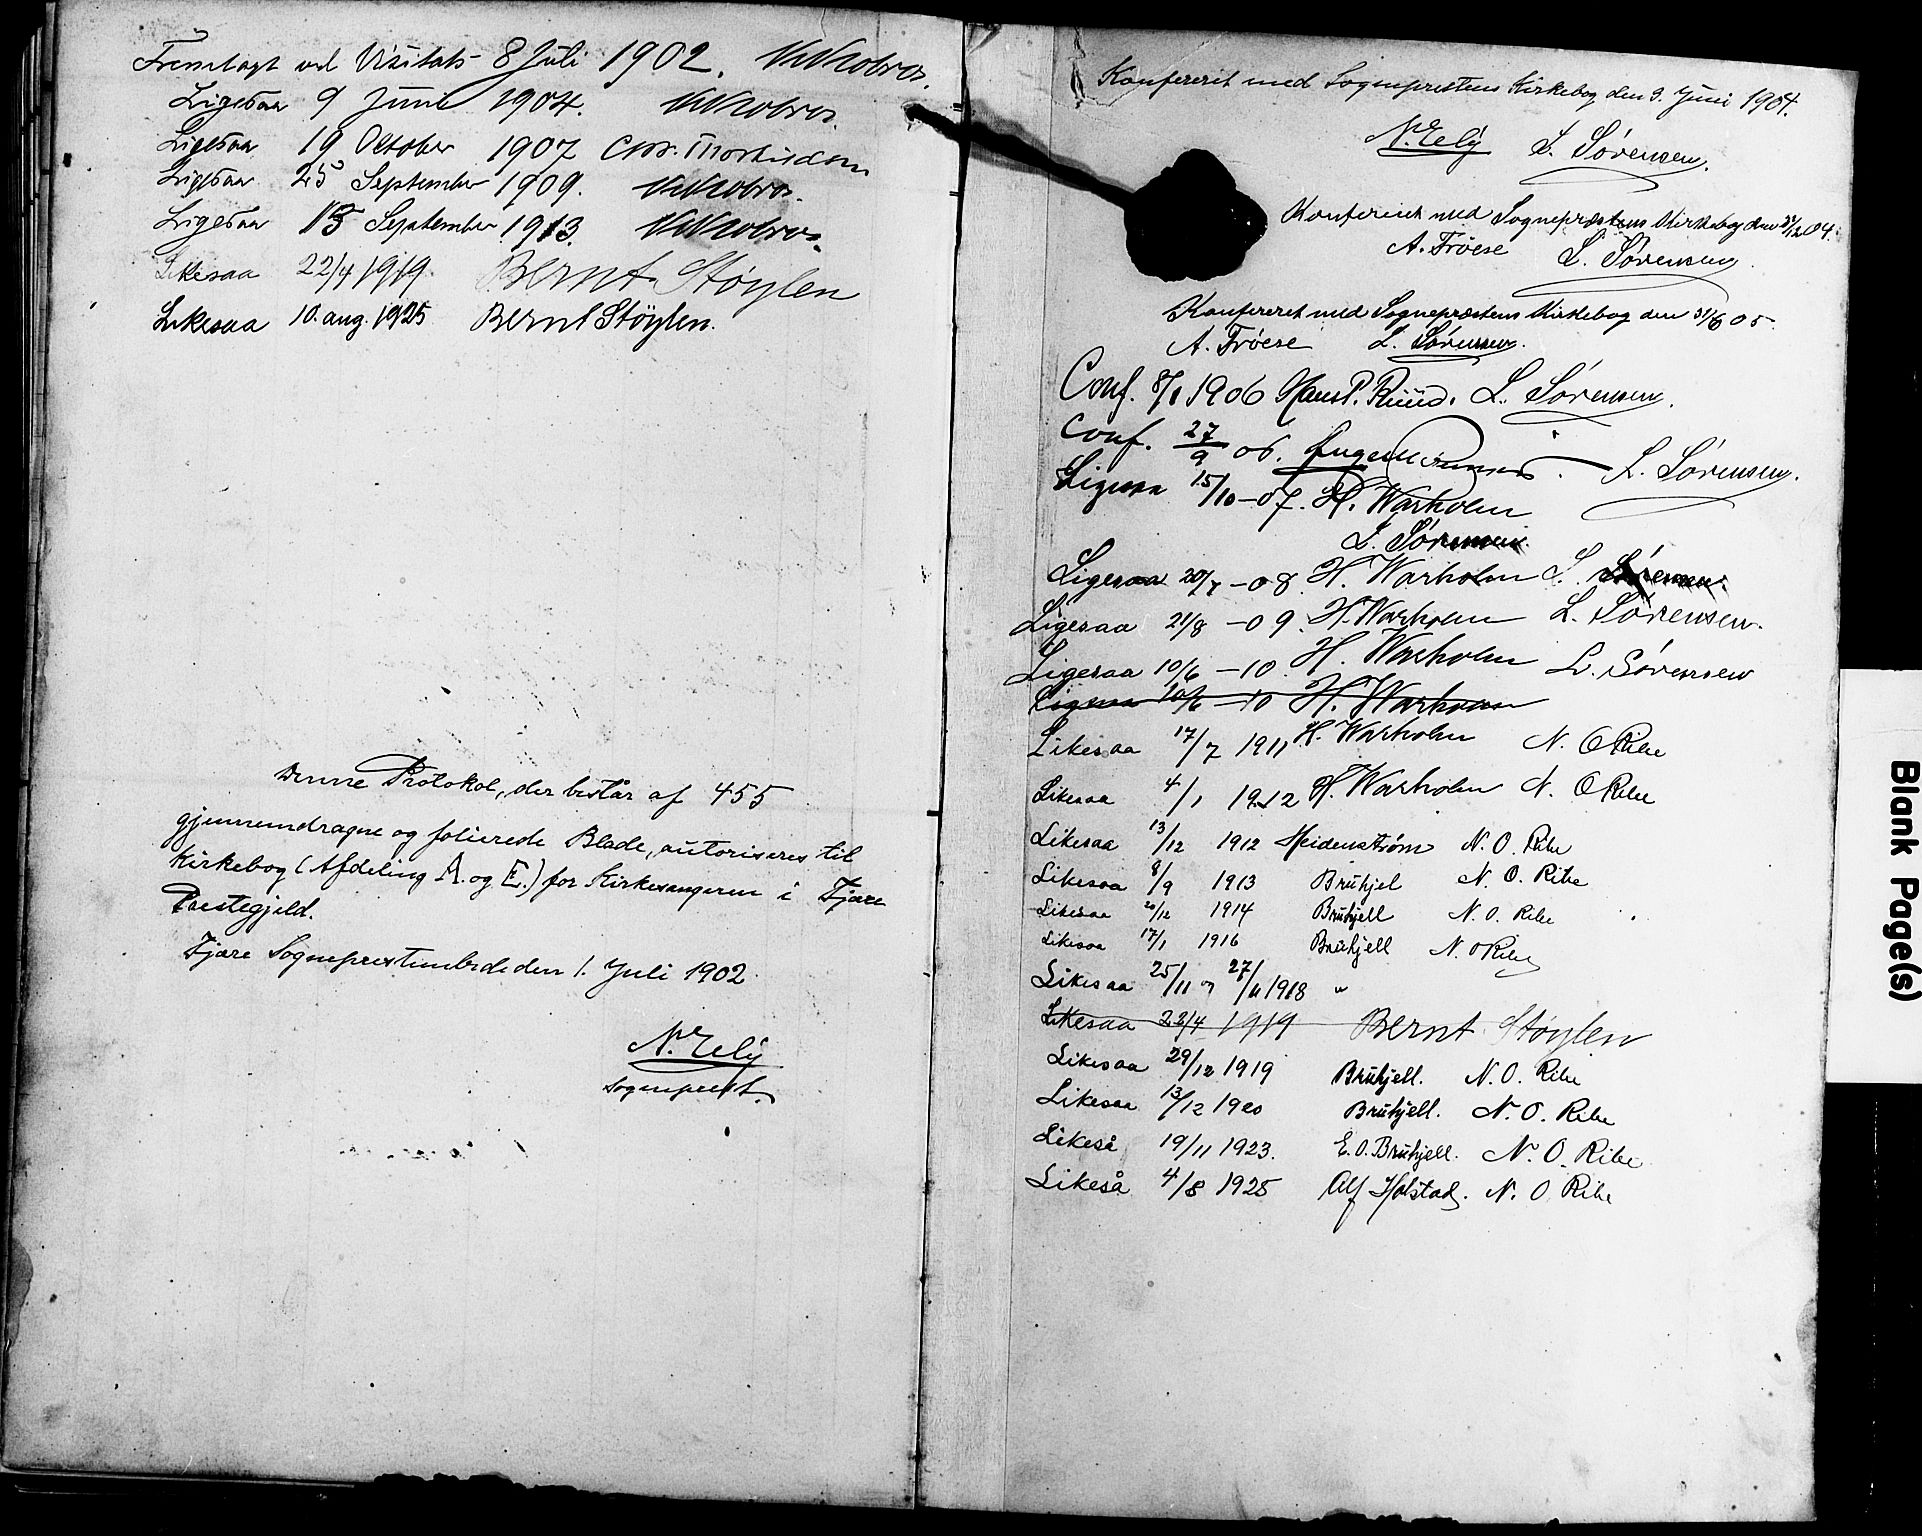 Fremlagt ved Visitats 8 Juli 1902.
Ligesaa 9 Juni 1904.
Ligesaa 19 Oktober 1907 Chr.
Ligesaa 25 September 1909.
Ligesaa 15 September 1913.
Likesaa 22/4 1919 Bernt Støylen
Likesaa 10. aug. 1925 Bernt Støylen.
Denne Protokol, der består af 455
gjennemdragne og folierede Blade, autoriseres til
Kirkebog (Afdeling A. og E.) for Kirkesangeren i Fjære
Præstegjeld.
Fjære Sogneprestembede den 1. Juli 1902
sogneprest.
Konfereret med Sogneprestens Kirkebog den 9. Juni 1904.
L. Sørensen.
Konfereret med Sogneprestens Kirkebog den 31/12 04.
A. Trøese L. Sørensen
Konfereret med Sogneprestens Kirkebog den 31/6 05.
A. Trøese L. Sørensen.
Conf. 8/1 1906 Hans P. Ruud. L. Sørensen.
Conf. 27/9 06. L. Sørensen.
Ligesaa 15/10 -07. H. Warholm
L. Sørensen
Ligesaa 20/7 -08 H. Warholm L. Sørensen.
Ligesaa 21/8 -09. H. Warholm L. Sørensen.
Ligesaa 10/6 -10 H. Warholm L. Sørensen
Ligesaa 10/6 -10 H. Warholm
Likesaa 17/7 1911 H. Warholm N. O Ribe
Likesaa 4/1 1912 H. Warholm N. O Ribe
Likesaa 13/12 1912 Heidenstrøm N. O. Ribe
Likesaa 8/9 1913 Bruhjel N. O. Ribe
Likesaa 20/12 1914 Bruhjell N. O. Ribe
Likesaa 17/1 1916 Bruhjell N. O Ribe
Likesaa 25/11 og 27/11 1918 "
Likesaa 22/4 1919 Bernt Støylen
Likesaa 29/12 1919 Bruhjell. N. O. Ribe
Likesaa 13/12 1920 Bruhjell. N. O. Ribe
Likeså 19/11 1923. E. O. Bruhjell. N. O. Ribe
Likeså 4/8 1925 Alf Holstad. N. O Ribe
Blank Page(s)